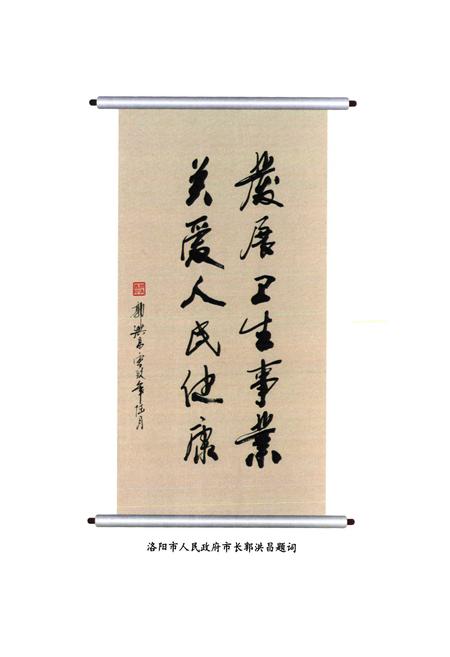 發展卫生事業
关爱人民健康
郭洪昌 零玖年陆月
洛阳市人民政府市长郭洪昌题词